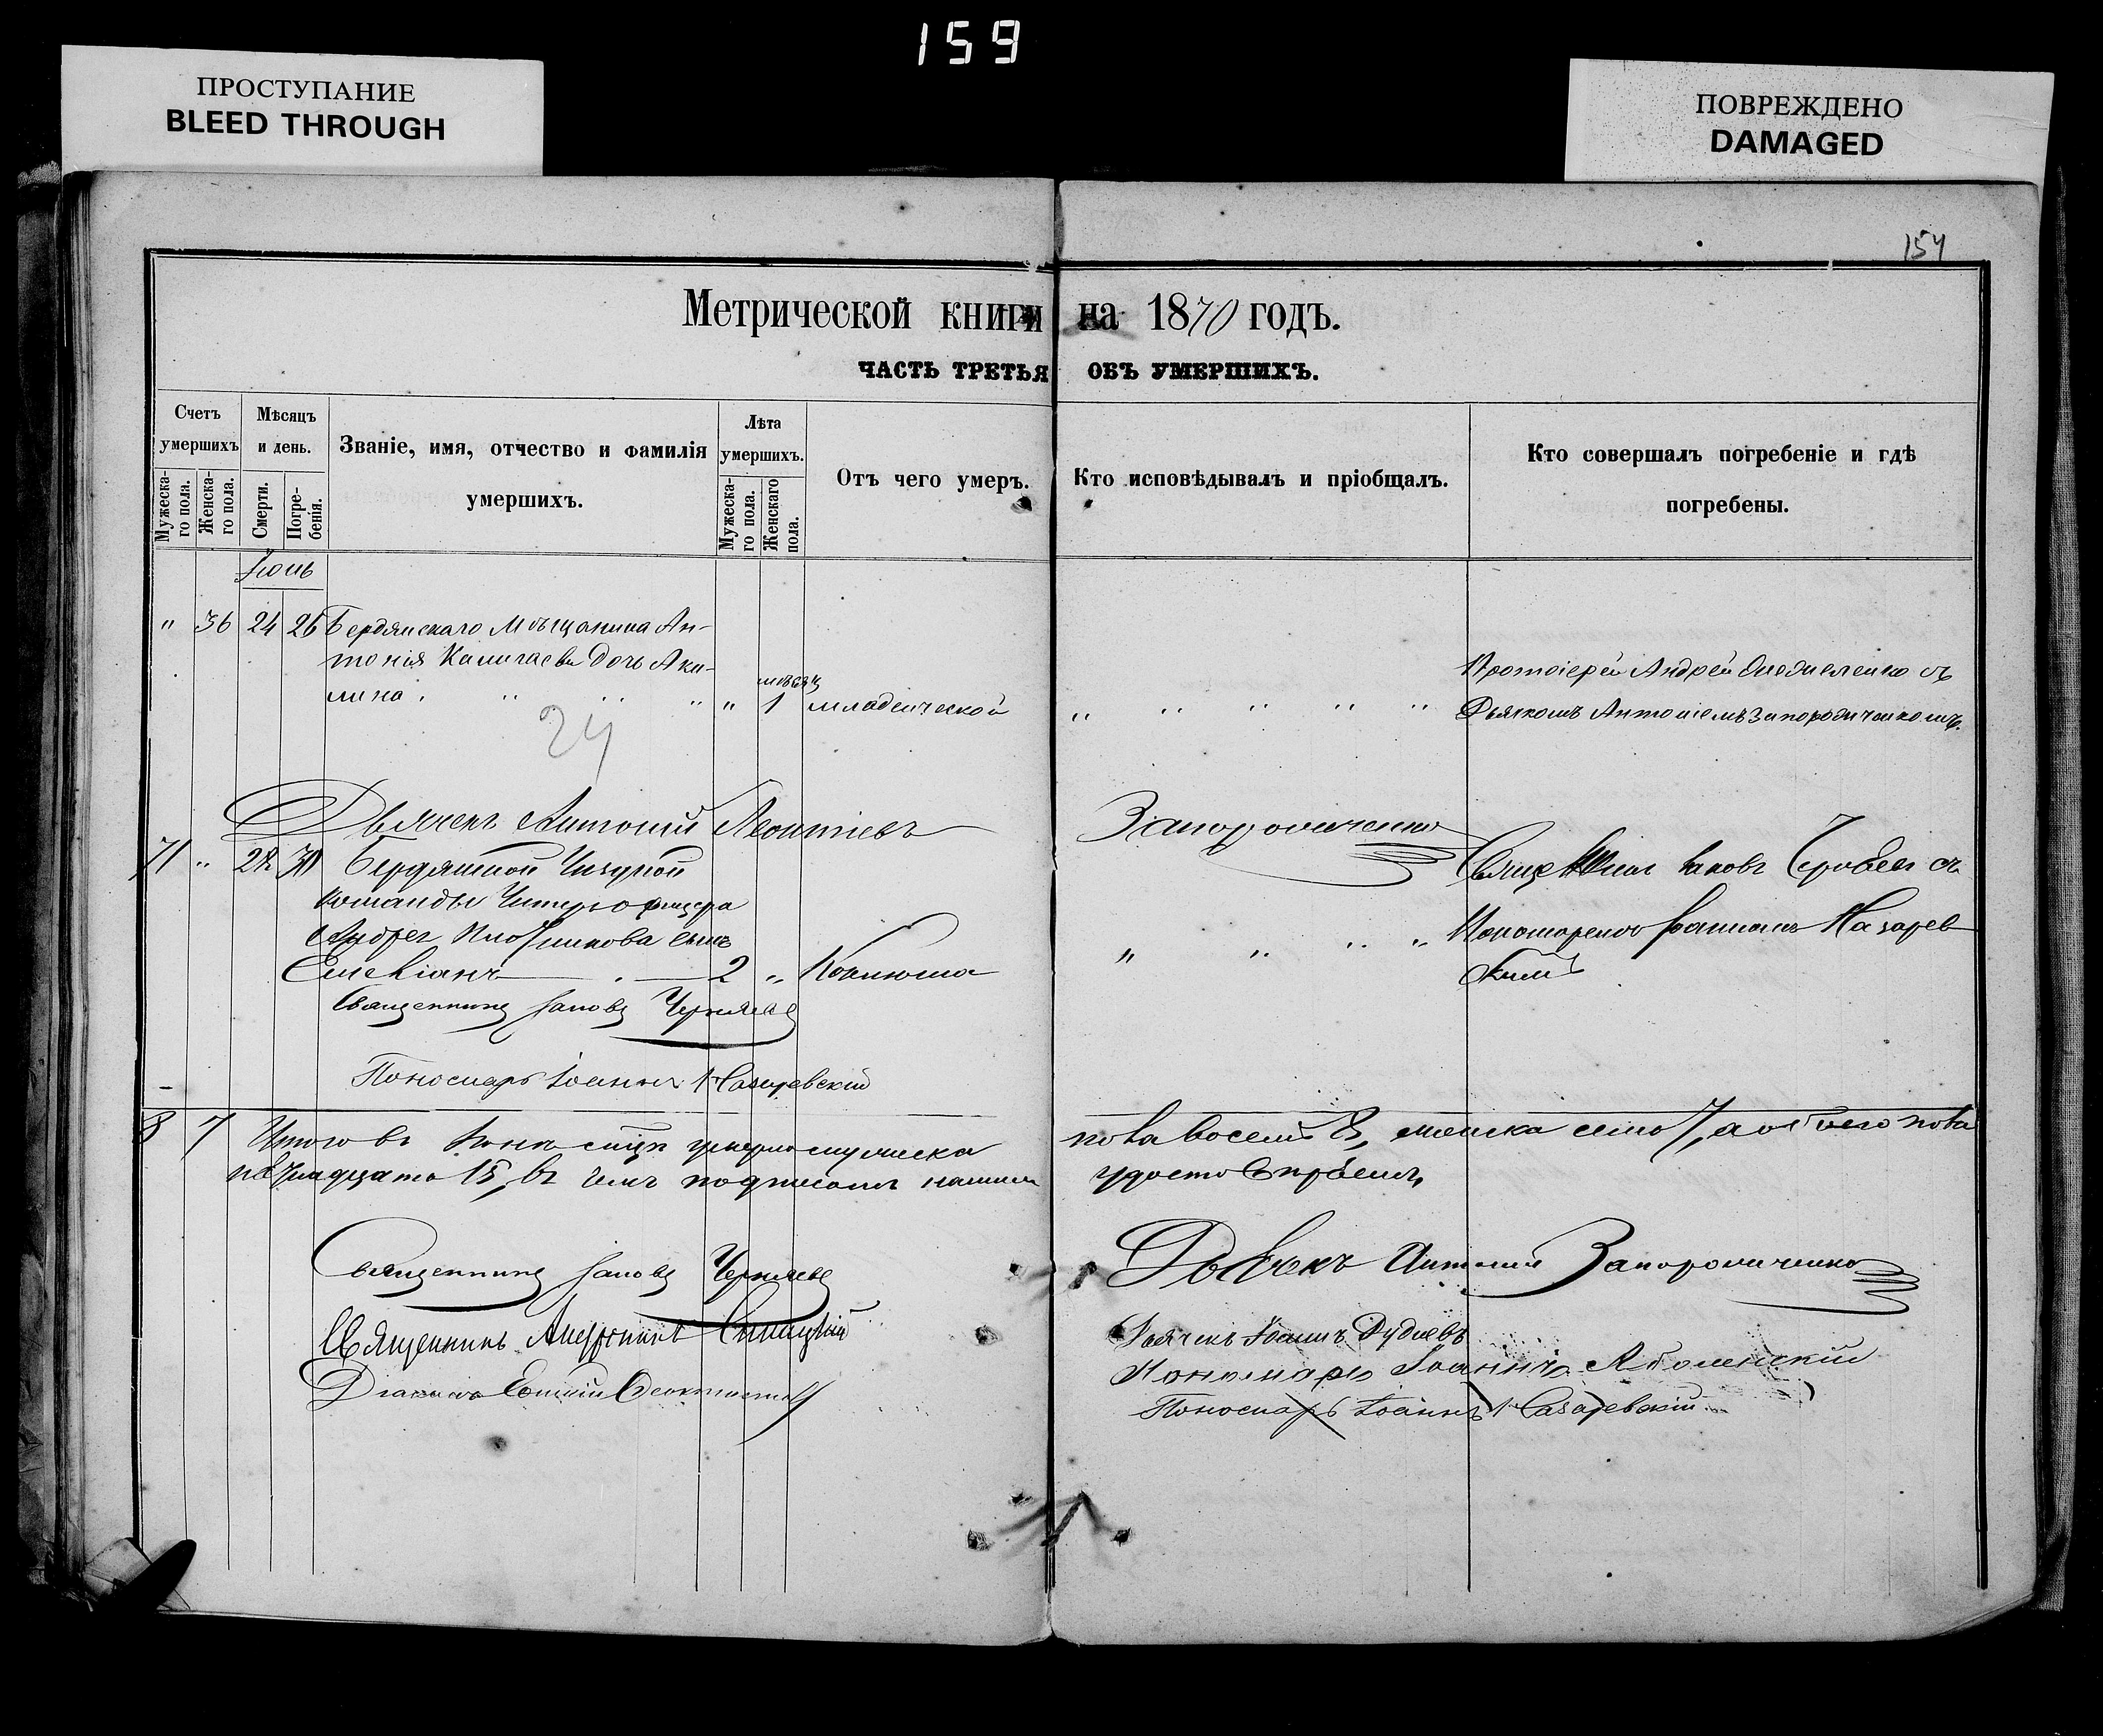 159
ПРОСТУПАНИЕ
BLEED THROUGH
ПОВРЕЖДЕНО
DAMAGED
154
Метрической книги на 1870 годъ.
ЧАСТЬ ТРЕТЬЯ ОБЪ УМЕРШИХЪ.
Счетъ умершихъ
Мужеска-го пола.
Женска-го пола.
Мѣсяцъ и день.
Смерти.
Погре-бенія.
Званіе, имя, отчество и фамилія умершихъ.
Лѣта умершихъ.
Мужеска-го пола.
Женскаго пола.
Отъ чего умеръ.
Кто исповѣдывалъ и пріобщалъ.
Кто совершалъ погребеніе и гдѣ погребены.
Іюнь
" 36 24 26 Бердянскаго Мѣщанина Ан-
тонія дочь Аки-
лина " " " " мѣсяц 1 младенческой " " " " "
Протоіерей Андрей съ
Дьячкомъ Антоніемъ Запорожченкомъ.
24
Дьячекъ Антоній Леонтіевъ Запорожченко
71 " 28 30 Бердянской
команды Унтеръ офицера
Андрея сынъ
2 " Коклюша " " " "
Іаковъ съ
Пономаремъ Іоанномъ Назарев-
скимъ
Священникъ Іаковъ Черняевъ
Пономарь Іоаннъ Назаревскій
8 7 Итого въ Іюнѣ мѣсяцѣ умерло мужеска пола восемь 8, женска семь 7, а обоего пола
пятнадцать 15, въ чемъ подписомъ нашимъ удостовѣряемъ,
Священникъ Іаковъ Черняевъ
Дьячекъ Антоній Запорожченко
Священникъ Синицкій
Дьячекъ Іоаннъ
Діаконъ
Пономарь Іоаннъ
Пономарь Іоаннъ Назаревскій